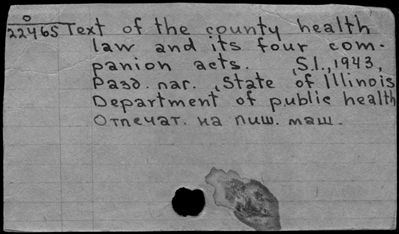 О
22465 Text of the county health
law and its four com-
panion acts. S.l., 1943,
Разд. паг. , State of Illinois
Department of public health
Отпечат. на пиш. маш.